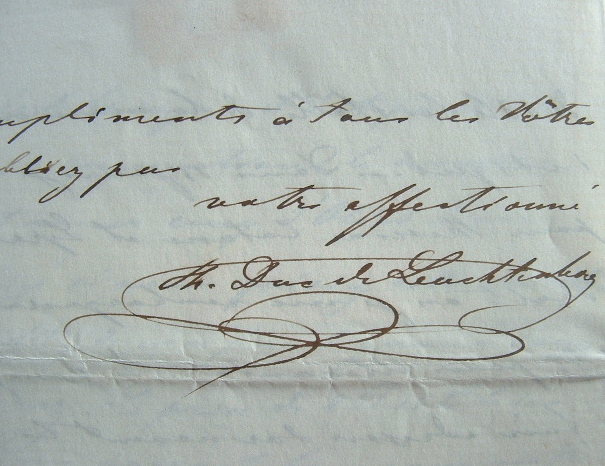 mpliments à tous les Vôtres
bliez pas
votre affectionné
Duc de Leuchtenberg